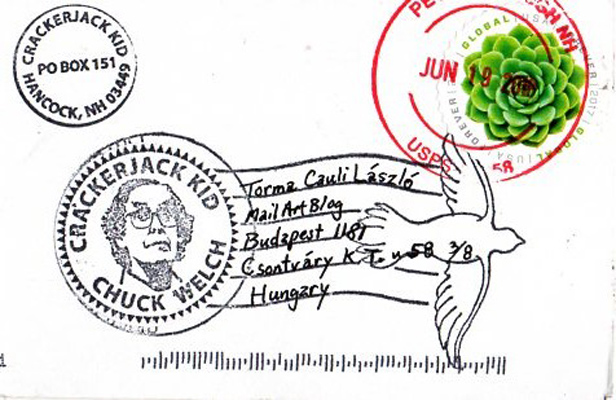 CRACKERJACK KID
PO BOX 151
HANCOCK, NH 03449
GLOBAL USA FOREVER 2017
JUN 19
USPS
58
CRACKERJACK KID
CHUCK WELCH
Torma Cauli László
Mail Art Blog
Budapest 1181
Csontváry K. T. u 58 3/8
Hungary